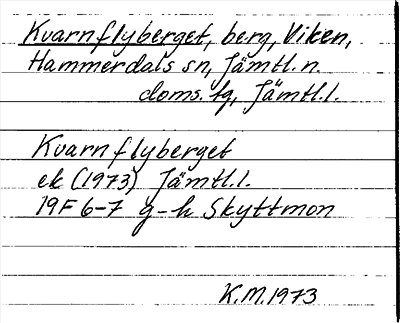 Kvarnflyberget, berg, Viken,
Hammerdals sn, Jämtl. n.
doms. fg, Jämtl. l.
Kvarnflyberget
ek (1973) Jämtl. l.
19F 6-7 g-h Skyttmon
K.M. 1973